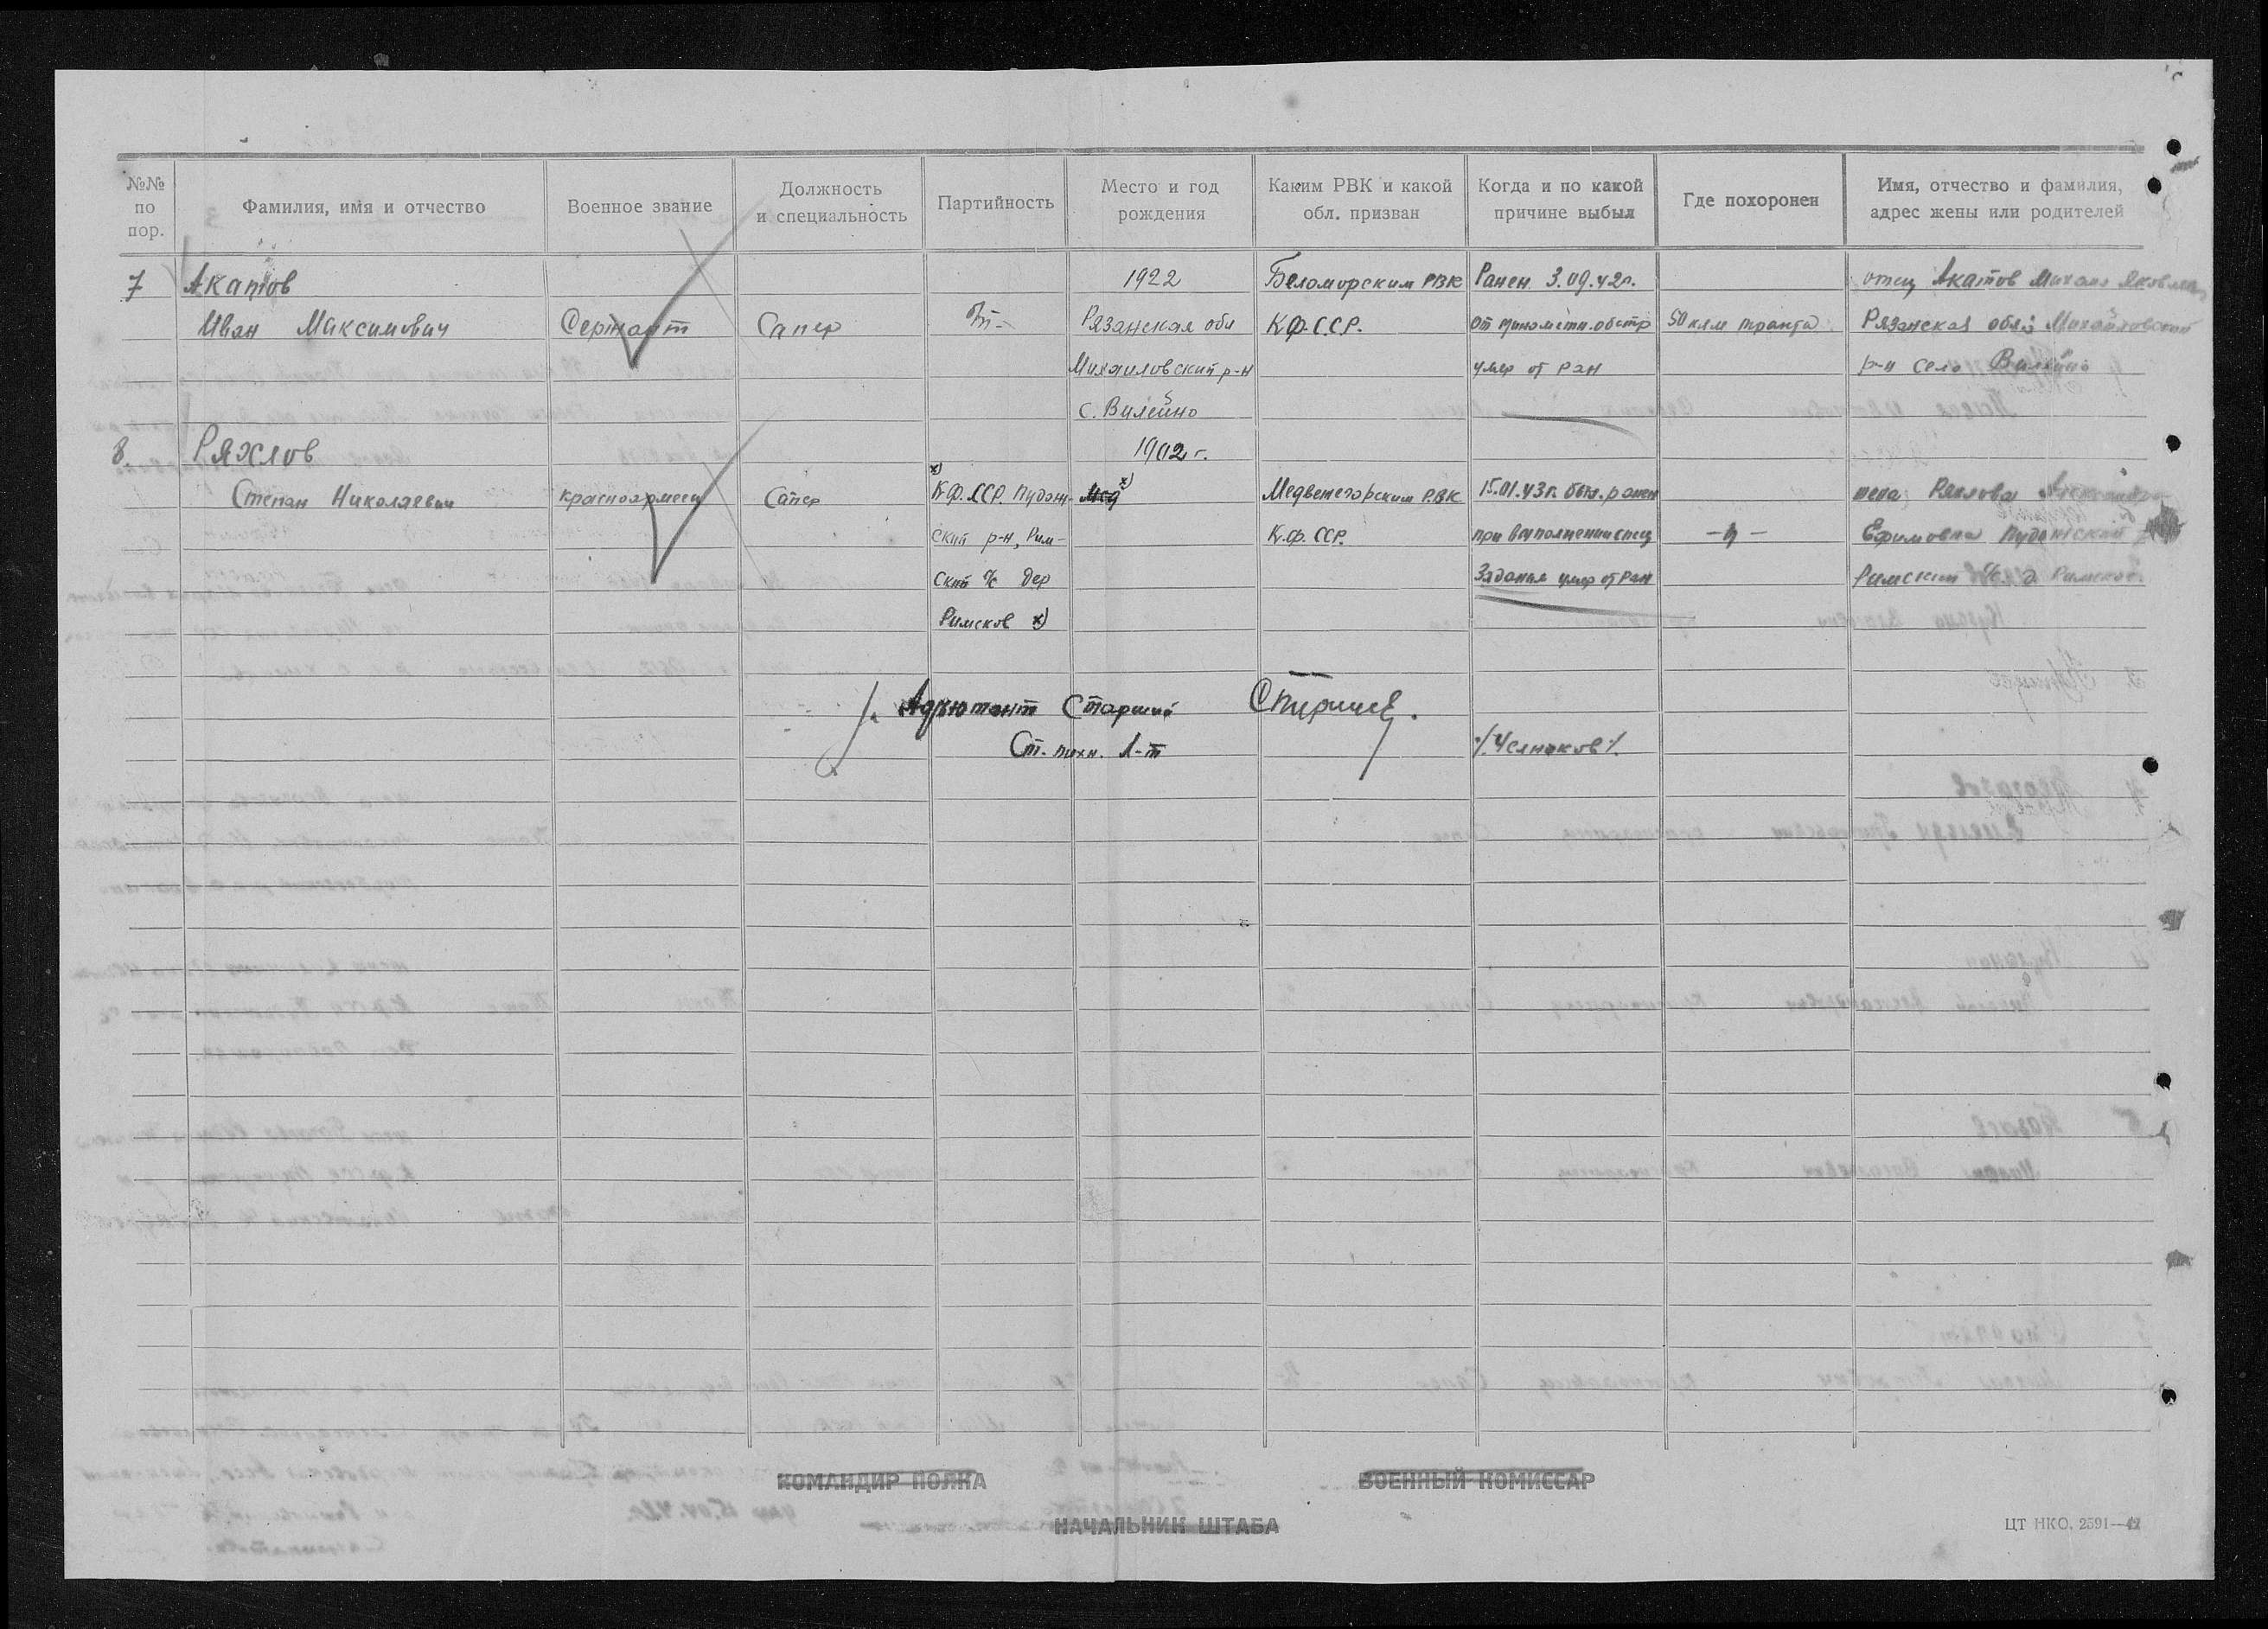 №№ по пор.
Фамилия, имя и отчество
Военное звание
Должность и специальность
Партийность
Место и год рождения
Каким РВК и какой обл. призван
Когда и по какой причине выбыл
Где похоронен
Имя, отчество и фамилия, адрес жены или родителей
7 Акатов 1922 Беломорским РВК Ранен 3.09.42г. отец Акатов
Иван Максимович Сержант Сапер Рязанская обл К.Ф.С.С.Р. от минометн. обстр 50 клм тракта Рязанская обл. Михайловский
Михайловский р-н умер от ран р-н село Вилейно
с. Вилейно
8. Ряхлов 1902 г.
Степан Николаевич красноармеец Сапер х) К.Ф.ССР. Пудож- Мед х) Медвежегорским Р.ВК 15.01.43г. был. ранен жена Ряхлова
ский р-н, Рим- К.Ф. ССР. при выполнении спец -"- Ефимовна Пудожский
ский с/с дер задания умер от ран Римский с/с. д. Римское.
Римсков х)
Адъютант Старший
Ст. техн. Л-т
КОМАНДИР ПОЛКА
ВОЕННЫЙ КОМИССАР
НАЧАЛЬНИК ШТАБА
ЦТ НКО, 2591—42